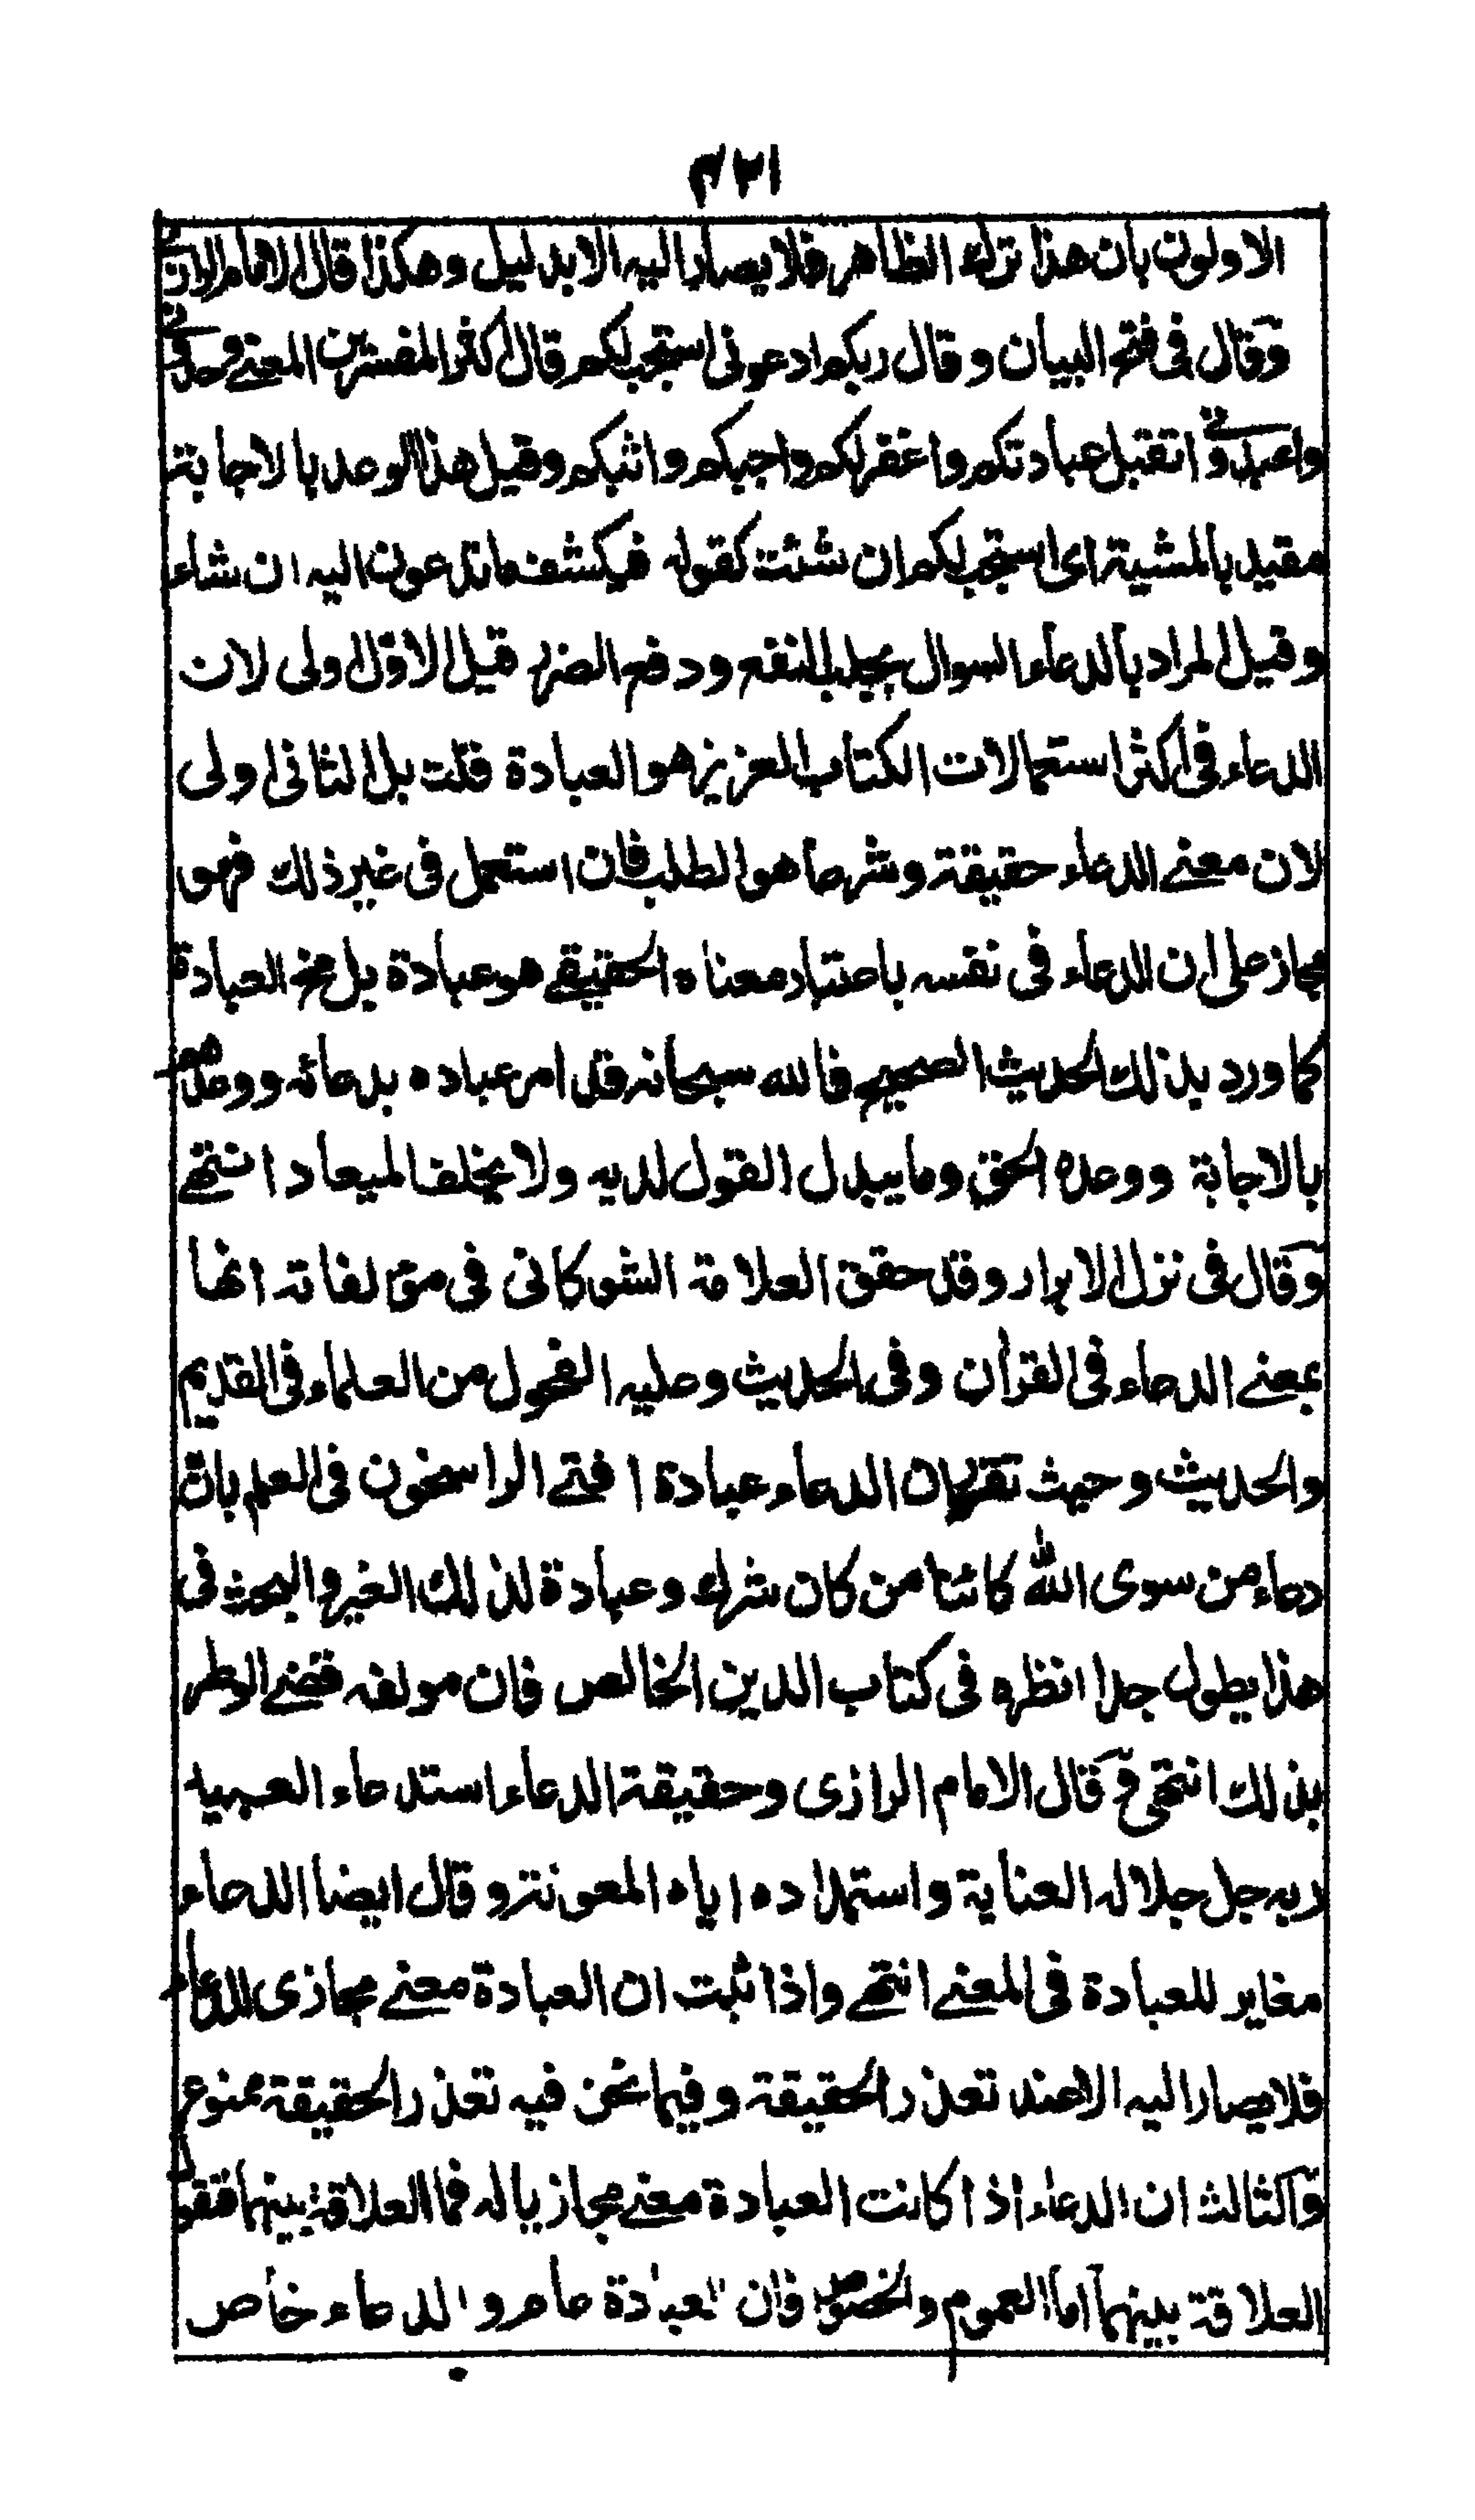 ٣٢١
الاولون بان هذا ترك الظاهر فلا يصار اليه الا بدليل وهكذا قال الامام الرازى
وقال فى فتح البيان وقال ربكم ادعونى استجب لكم قال اكثر المفسرين المعنى وحدونى
واعبدونى اتقبل عبادتكم واغفر لكم واجبكم واثبكم وقيل هذا الوعد بالاجابة
مقيد بالمشية اى استجب لكم ان شئت كقوله فيكشف ما تدعون اليه ان شاء
وقيل المراد بالدعاء السوال بجلب النفع ودفع الضر قيل الاول اولى لان
الدعاء فى اكثر استعمالات الكتاب العزيز هو العبادة قلت بل الثانى اولى
لان معنى الدعاء حقيقة وشرعا هو الطلب فان استعمل فى غير ذلك فهو
مجاز على ان الدعاء فى نفسه باعتبار معناه الحقيقى هو عبادة بل مخ العبادة
كما ورد بذلك الحديث الصحيح فالله سبحانه قد امر عباده بدعائه ووعدهم
بالاجابة ووعده الحق وما يبدل القول لديه ولا يخلف الميعاد انتهى
وقال فى نزل الابرار وقد حقق العلامة الشوكانى فى مؤلفاته انها
بمعنى الدعاء فى القرأن وفى الحديث وعليه الفحول من العلماء فى القديم
والحديث وحيث تقرر ان الدعاء عبادة افتى الراسخون فى العلم بان
دعاء من سوى الله كائنا من كان شرك وعبادة لذلك الغير والبحث فى
هذا يطول جدا انظره فى كتاب الدين الخالص فان مولفه قضى الوطر
بذلك انتهى وقال الامام الرازى وحقيقة الدعاء استدعاء العبد
ربه جل جلاله العناية واستمداده اياه المعونة وقال ايضا الدعاء
مغاير للعبادة فى المعنى انتهى واذا ثبت ان العبادة معنى مجازى للدعاء
فلا يصار اليه الا عند تعذر الحقيقة وفيما نحن فيه تعذر الحقيقة ممنوع
والثالث ان الدعاء اذا كانت العبادة معنى مجازيا له فما العلاقة بينهما فنقول
العلاقة بينهما اما العموم والخصوص فان العبادة عام والدعاء خاص